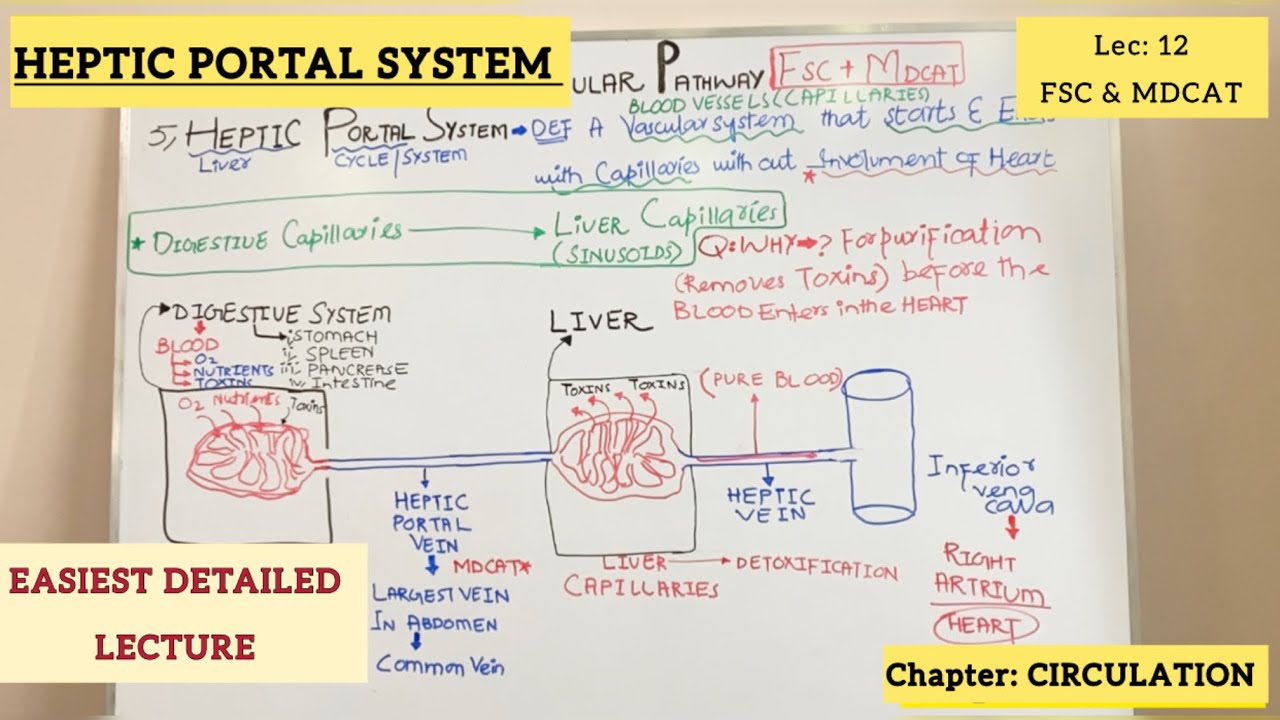 HEPTIC PORTAL SYSTEM
ULAR PATHWAY FSC + MDCAT
Lec: 12
FSC & MDCAT
BLOOD VESSELS (CAPILLARIES)
5, HEPTIC PORTAL SYSTEM → DEF A Vascular system that starts & Ends
Liver CYCLE/SYSTEM
with Capillaries with out Involument of Heart
* DIGESTIVE Capillaries → LIVER Capillaries
(SINUSOIDS)
Q: WHY → ? For purification
(Removes Toxins) before the
BLOOD Enters in the HEART
DIGESTIVE SYSTEM
BLOOD
O2
NUTRIENTS
TOXINS
i; STOMACH
ii; SPLEEN
iii; PANCREASE
iv; Intestine
O2 Nutrients Toxins
LIVER
TOXINS TOXINS
(PURE BLOOD)
HEPTIC
PORTAL
VEIN
MDCAT*
LARGEST VEIN
IN ABDOMEN
Common Vein
LIVER → DETOXIFICATION
CAPILLARIES
HEPTIC
VEIN
Inferior
vena
cava
RIGHT
ARTRIUM
HEART
EASIEST DETAILED
LECTURE
Chapter: CIRCULATION